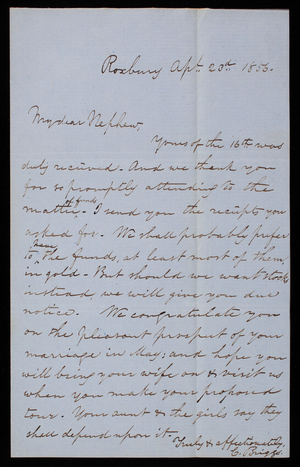 Roxbury Apl. 20th 1855.
My dear Nephew,
Yours of the 16th was
duly received. And we thank you
for so promptly attending to the
of funds
matter. I send you the receipts you
asked for. We shall probably prefer
have
to the funds, at least most of them,
in gold. But should we want stocks
instead, we will give you due
notice. We congratulate you
on the pleasant prospect of your
marriage in May; and hope you
will bring your wife on & visit us
when you make your proposed
tour. Your aunt & the girls say they
shall depend upon it.
Truly & affectionately,
C. Briggs.